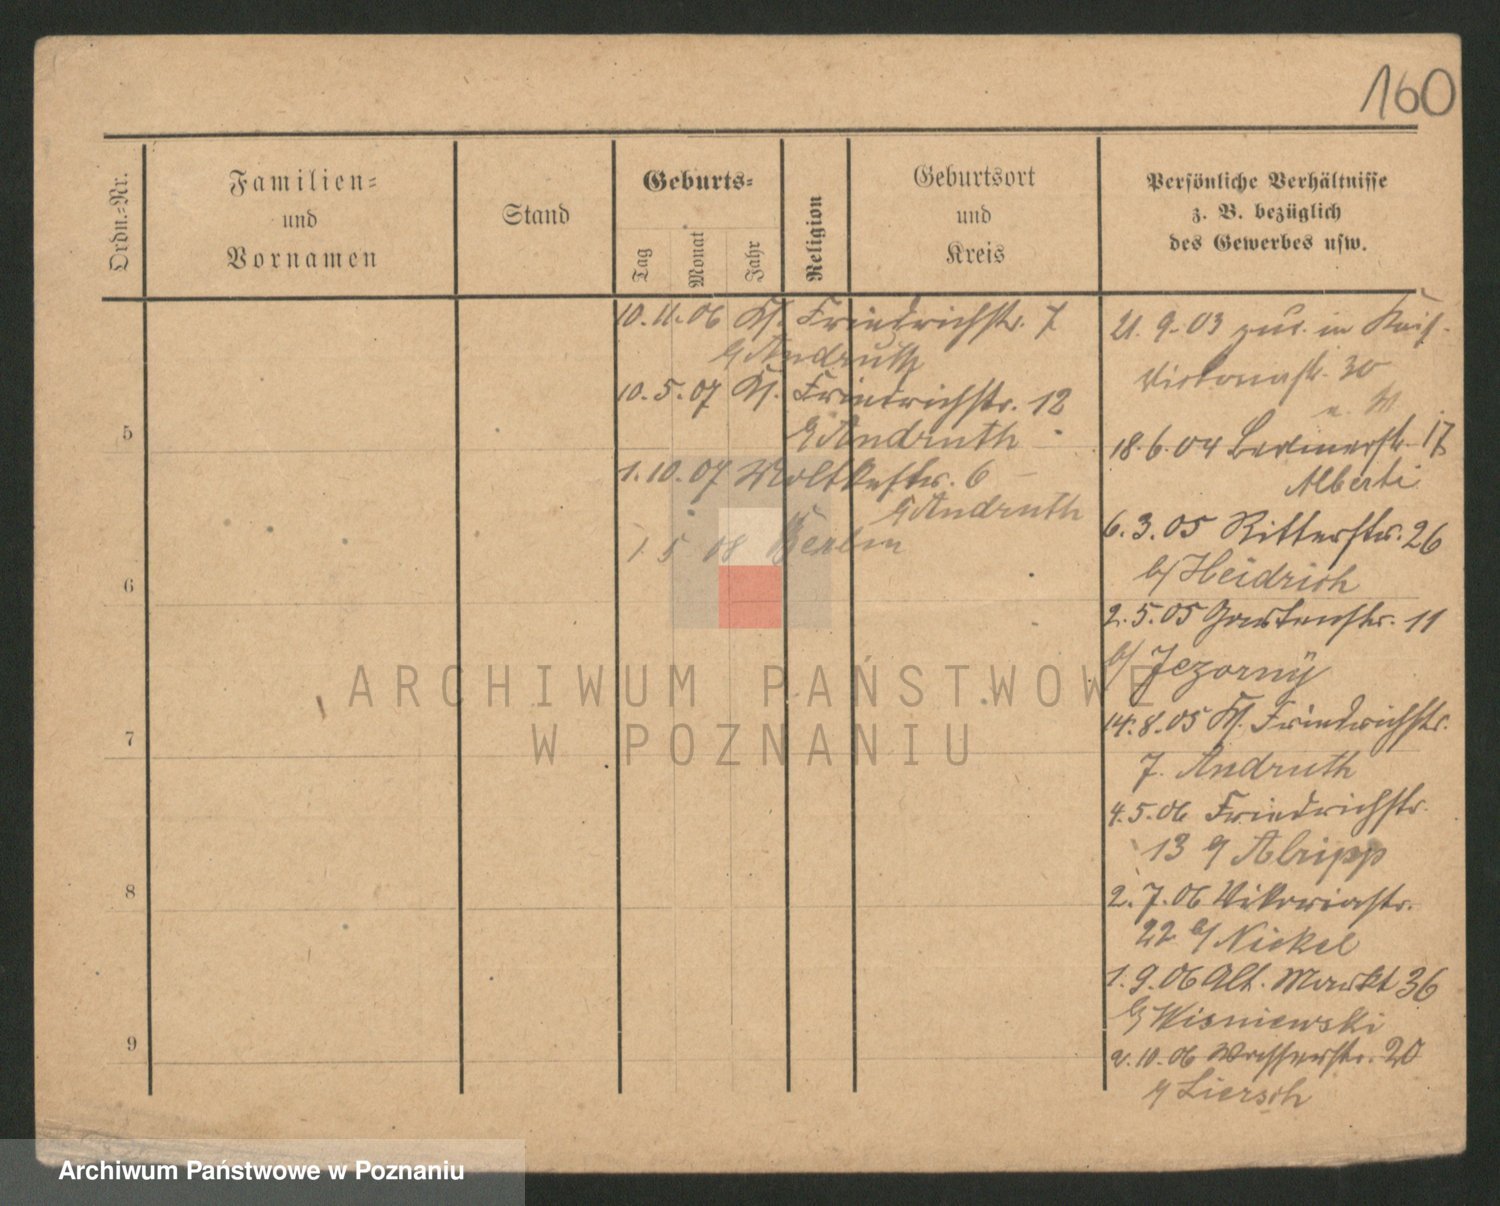 160
Ordn.-Nr.
Familien-
und
Vornamen
Stand
Geburts-
Tag
Monat
Jahr
Religion
Geburtsort
und
Kreis
Persönliche Verhältnisse
z. B. bezüglich
des Gewerbes usw.
10. 11. 06 Kl. Friedrichstr. 7
b/ Andruth
10. 5. 07 Kl. Friedrichstr. 12
b/ Andruth
1. 10. 07 Moltkestr. 6
b/ Andruth
1. 5. 08 Berlin
21. 9. 03 zur. in
Viktoriastr. 30
18. 6. 04 Berlinerstr. 17
Alberti
6. 3. 05 Ritterstr. 26
b/ Heidrich
2. 5. 05 Gartenstr. 11
b/ Jezorny
14. 8. 05 Kl. Friedrichstr.
7. Andruth
4. 5. 06 Friedrichstr.
13 b/ Abripp
2. 7. 06 Vikoriastr.
22 b/ Nickel
1. 9. 06 Alt. Markt 36
b/ Wisniewski
2. 10. 06 Wasserstr. 20
b/ Liersch
5
6
7
8
9
ARCHIWUM PAŃSTWOWE
W POZNANIU
Archiwum Państwowe w Poznaniu